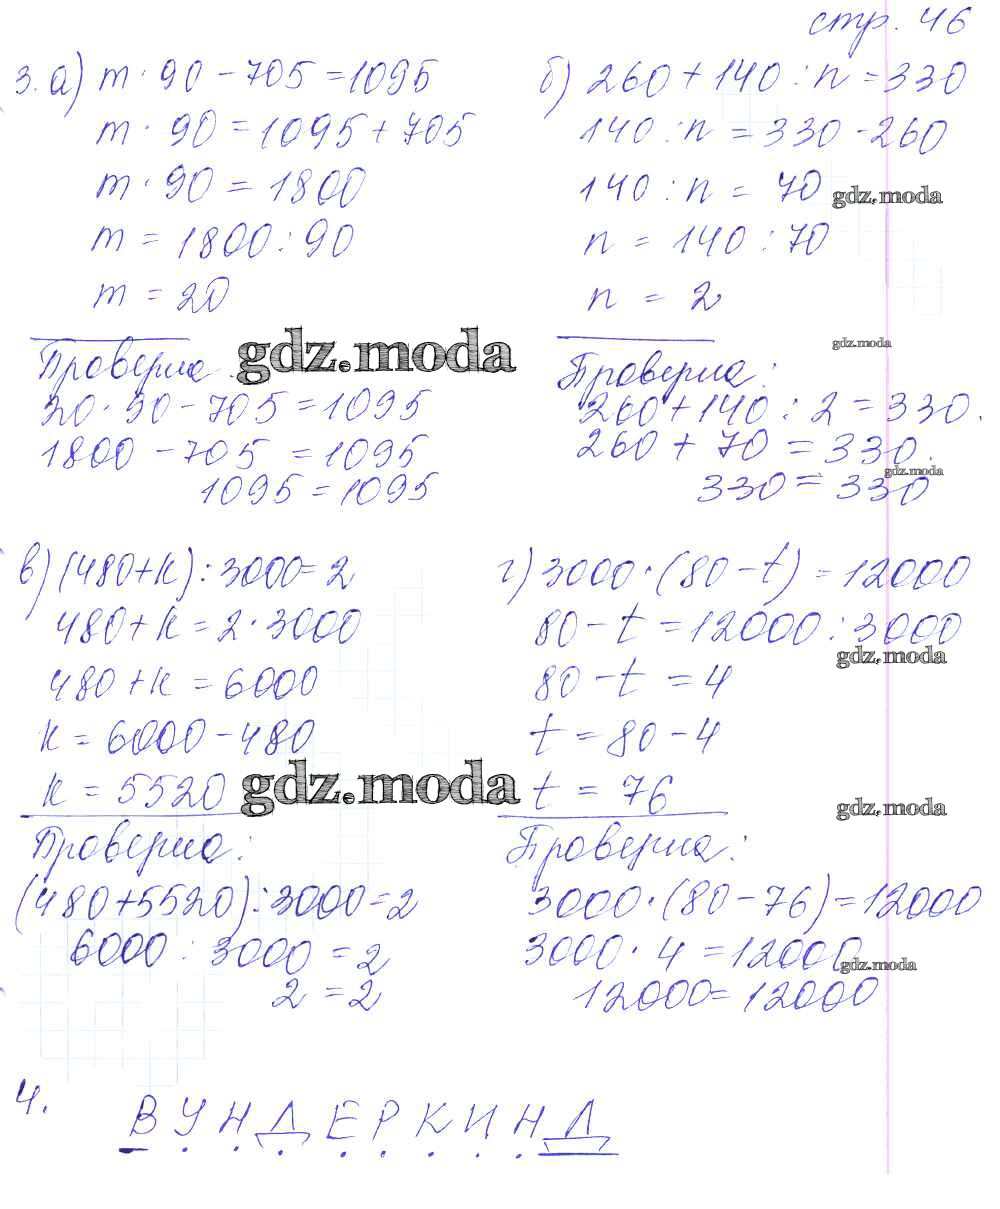 стр. 46
3. а) m · 90 - 705 = 1095
m · 90 = 1095 + 705
m · 90 = 1800
m = 1800 : 90
m = 20
Проверка:
20 · 90 - 705 = 1095
1800 - 705 = 1095
1095 = 1095
б) 260 + 140 : n = 330
140 : n = 330 - 260
140 : n = 70
n = 140 : 70
n = 2
Проверка:
260 + 140 : 2 = 330.
260 + 70 = 330.
330 = 330
в) (480 + k) : 3000 = 2
480 + k = 2 · 3000
480 + k = 6000
k = 6000 - 480
k = 5520
Проверка:
(480 + 5520) : 3000 = 2
6000 : 3000 = 2
2 = 2
г) 3000 · (80 - t) = 12000
80 - t = 12000 : 3000
80 - t = 4
t = 80 - 4
t = 76
Проверка:
3000 · (80 - 76) = 12000
3000 · 4 = 12000
12000 = 12000
4. ВУНДЕРКИНД
gdz.moda
gdz.moda
gdz.moda
gdz.moda
gdz.moda
gdz.moda
gdz.moda
gdz.moda